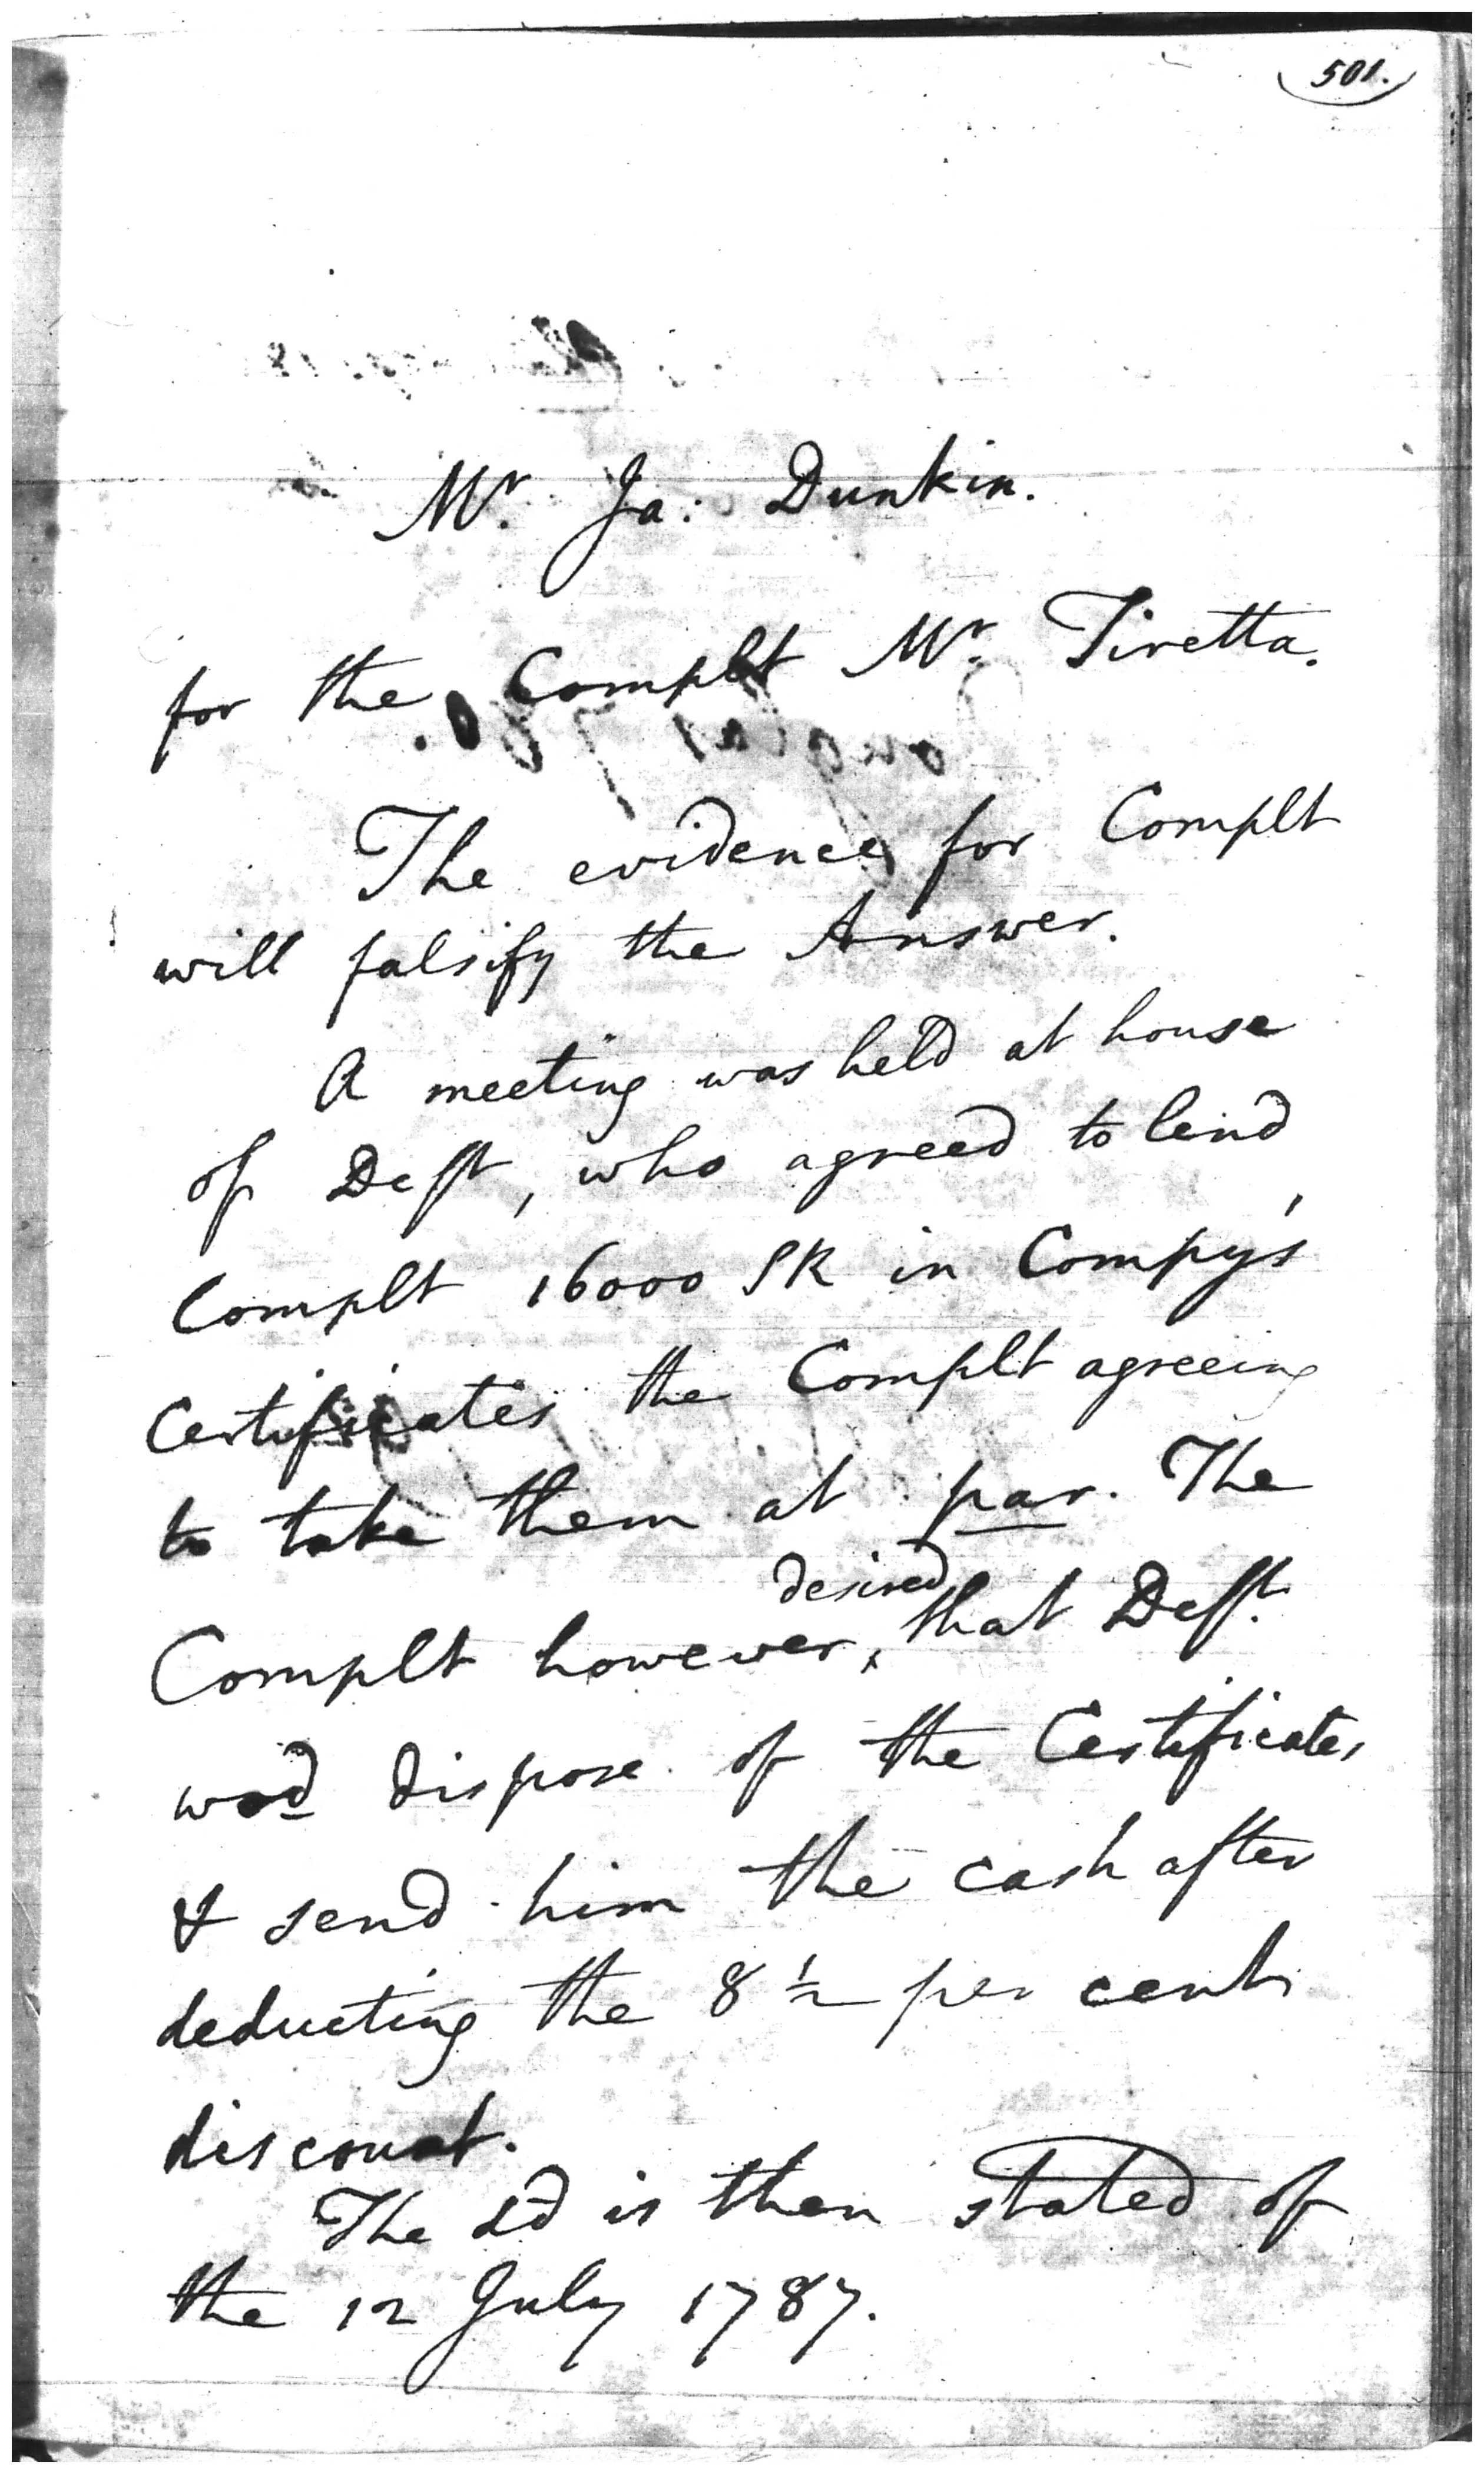 501.
Mr. Ja: Dunkin.
for the Complt Mr. Tiretta.
The evidence for Complt
will falsify the Answer.
A meeting was held at house
of Deft, who agreed to lend
Complt 16000 SR in Compy's
Certificates the Complt agreeing
to take them at par. The
desired
Complt however, ^ that Deft.
wod dispose of the Certificates
& send him the cash after
deducting the 8 1/2 per cent
discount.
The is then stated of
the 12 July 1787.